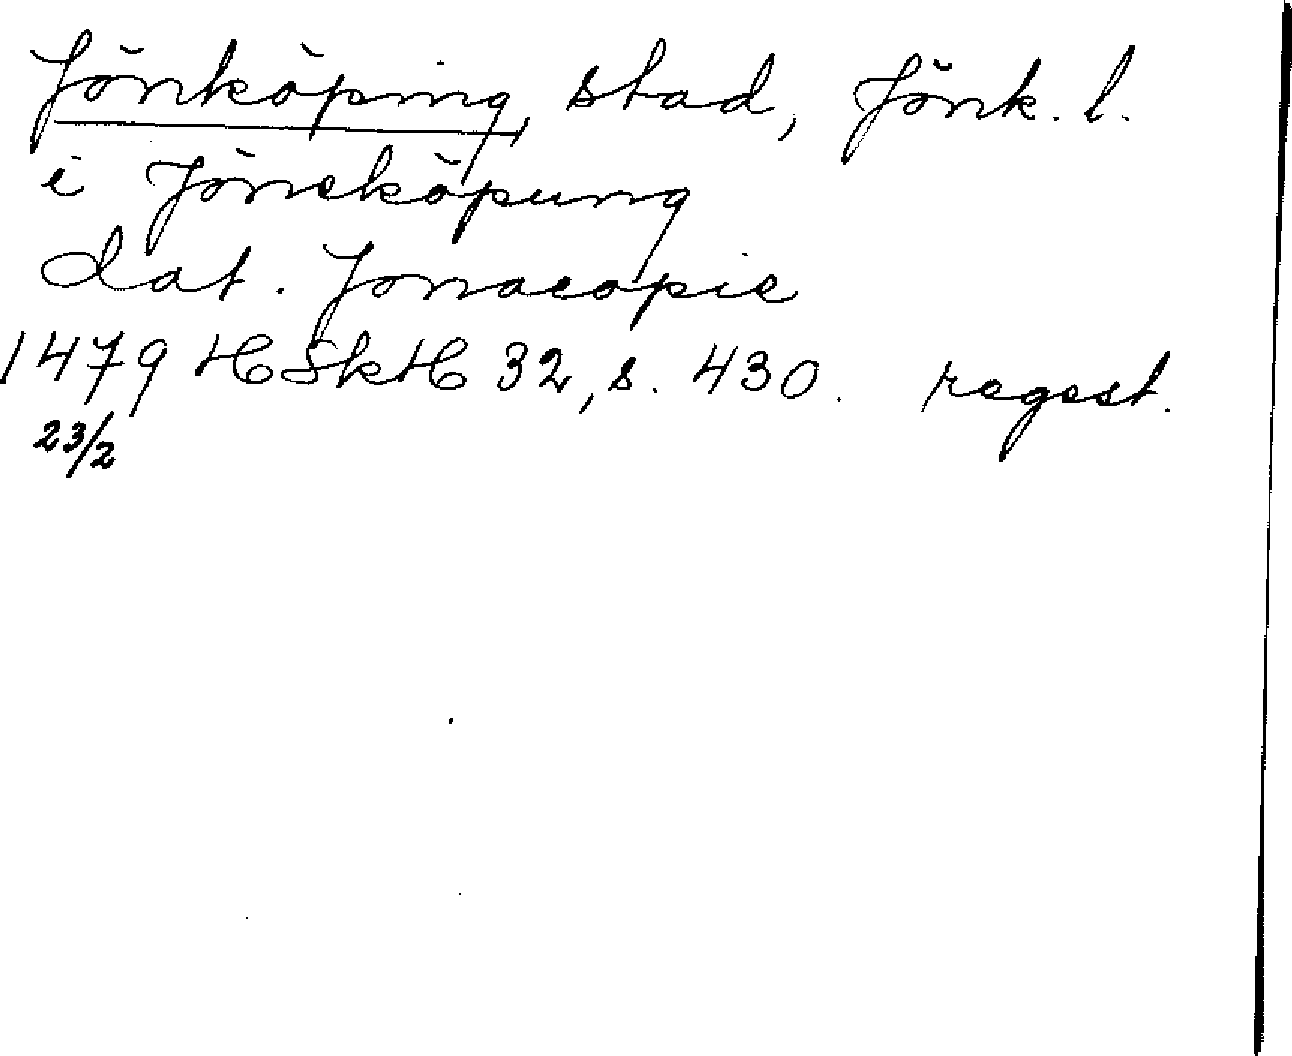 Jönköping, stad, Jönk. l.
i Jöneköpung
dat. Jonacopie
1479 HSkH 32, s. 430. regest.
23/2